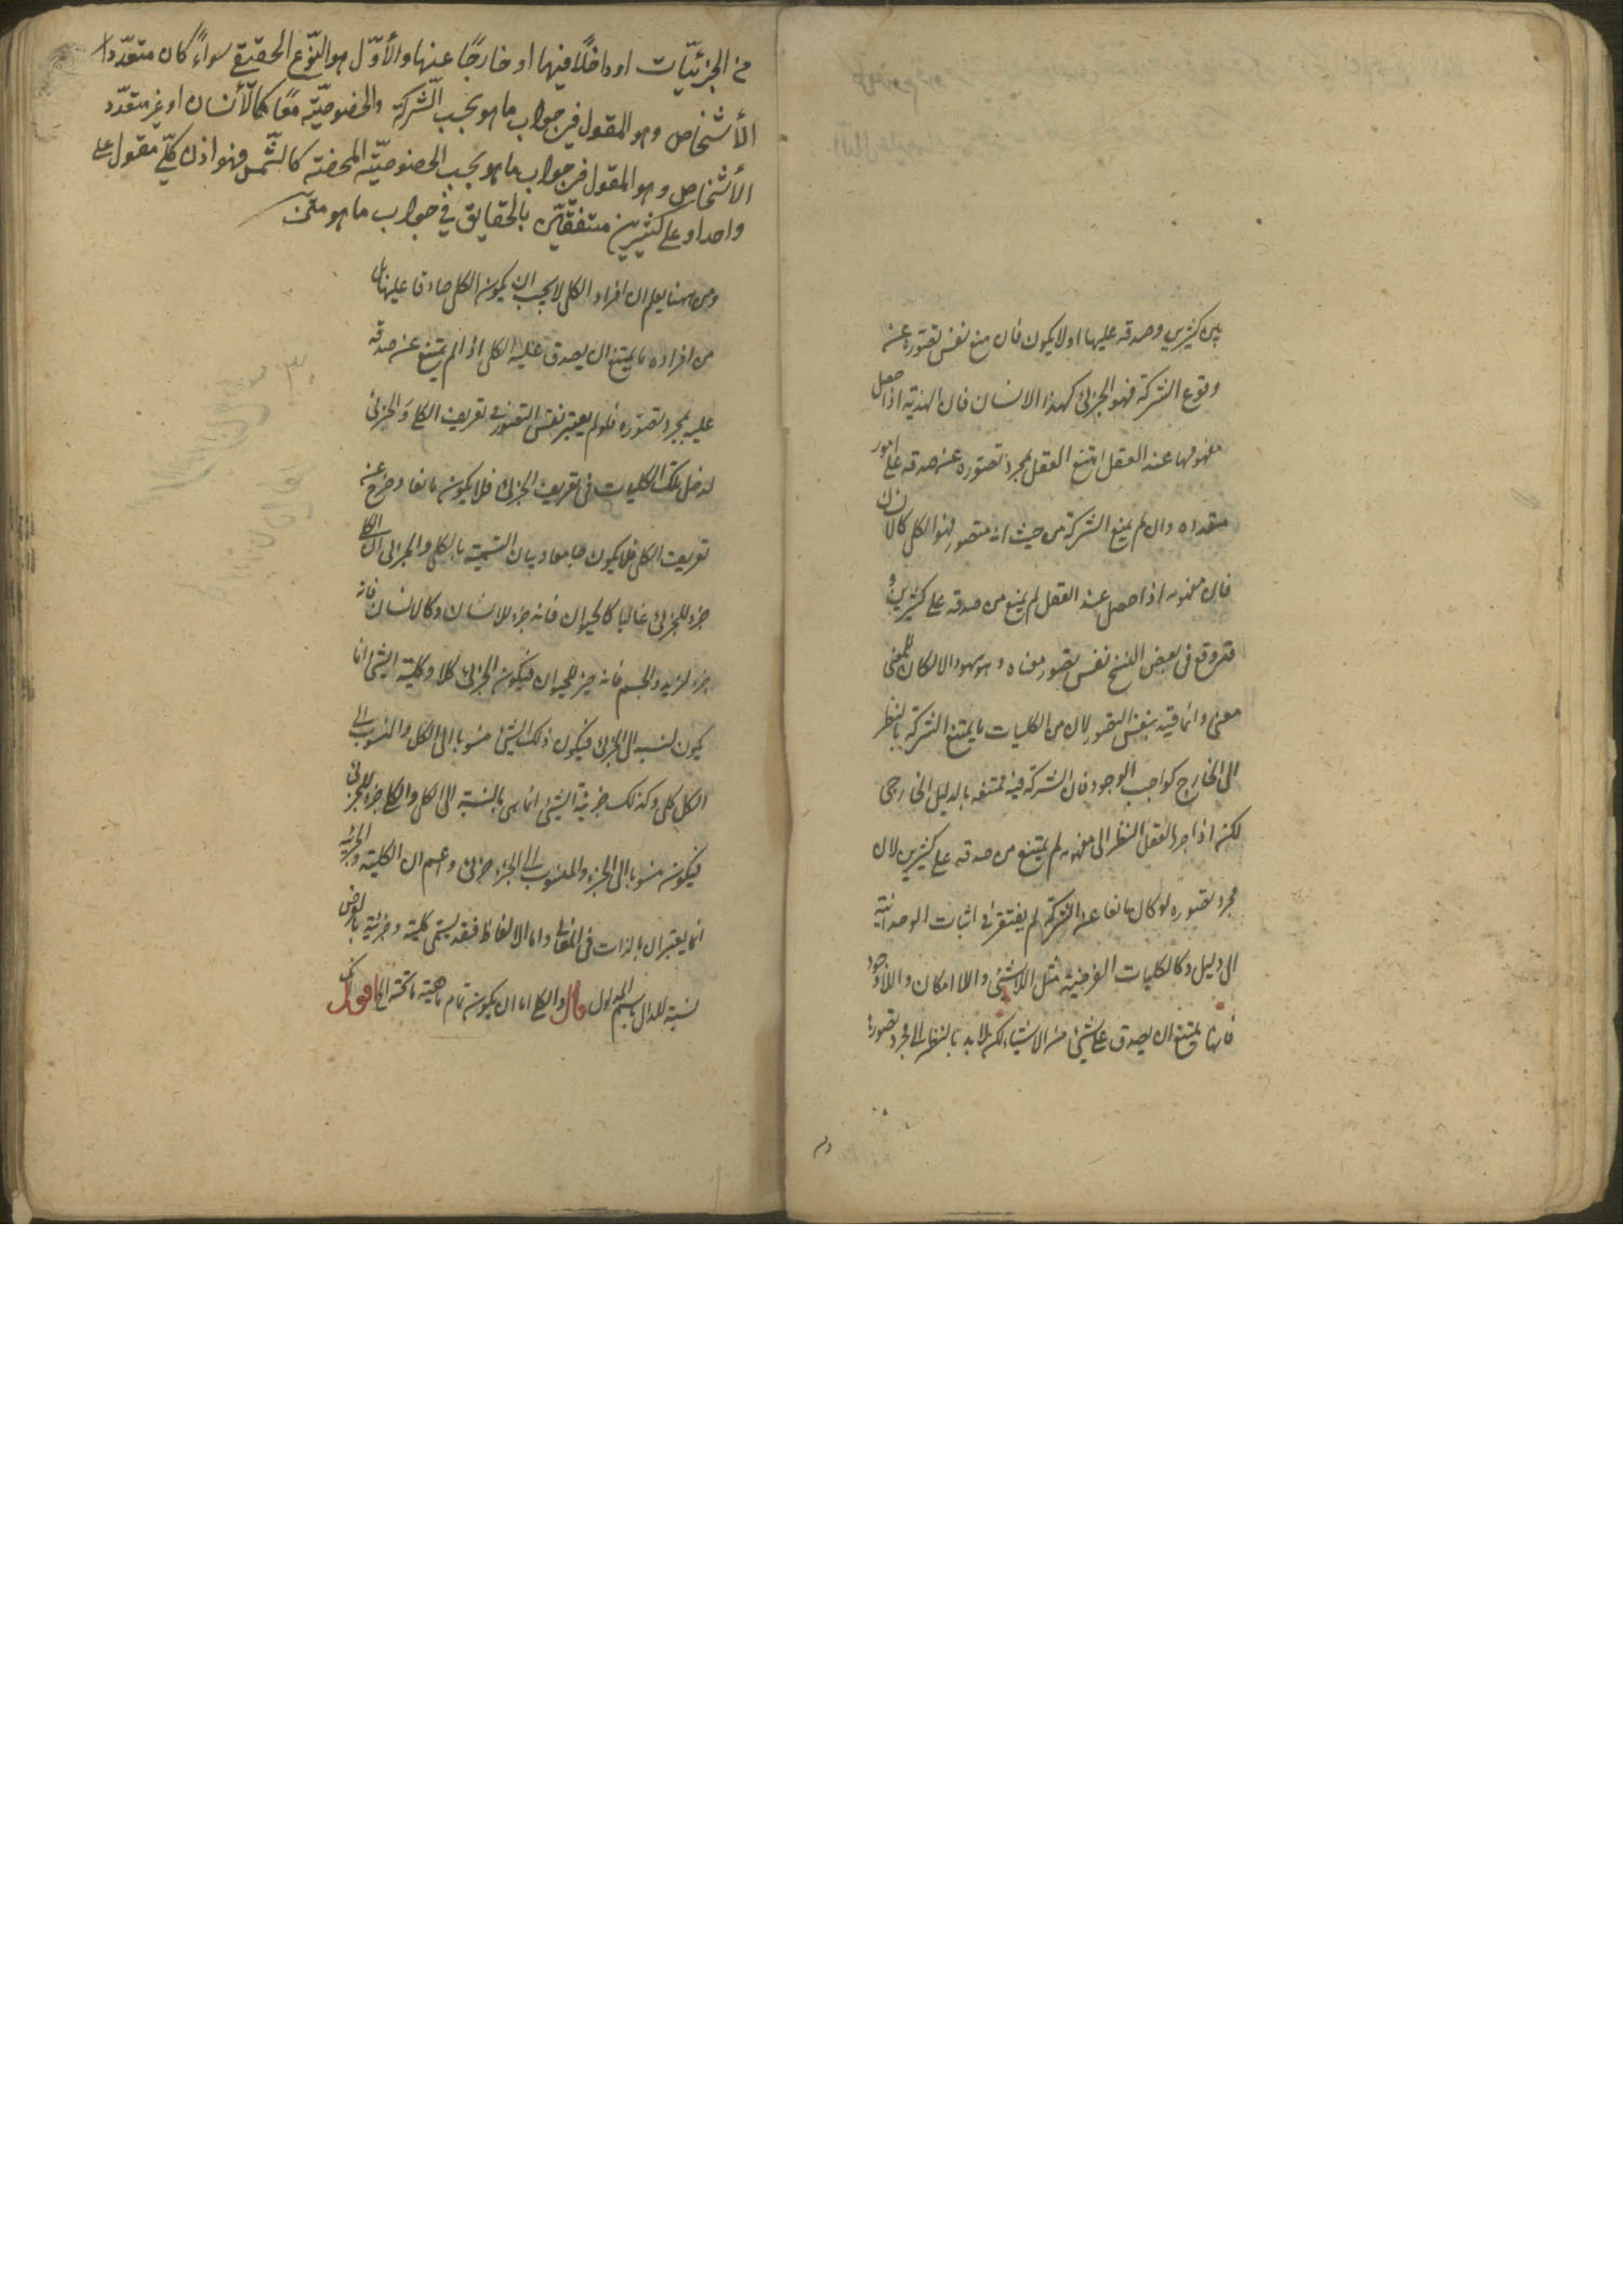 بين كثيرين وصدقه عليها او لا يكون فان منع نفس تصوره عن
وقوع الشركة فهو الجزئى كهذا الانسان فان الهذية اذا حصل
مفهومها عند العقل امتنع العقل بمجرد تصوره عن صدقه على امور
متعددة وان لم يمنع الشركة من حيث انه متصور فهو الكلى كالانسان
فان مفهومه اذا حصل عند العقل لم يمنع من صدقه على كثيرين و
قد وقع فى بعض النسخ نفس تصور معناه وهو سهو والا لكان للمعنى
معنى وانما قيد بنفس التصور لان من الكليات ما يمتنع الشركة بالنظر
الى الخارج كواجب الوجود فان الشركة فيه ممتنعة بالدليل الخارجى
لكن اذا جرد العقل النظر الى مفهومه لم يمتنع من صدقه على كثيرين لان
مجرد تصوره لو كان مانعا عن الشركة لم يفتقر فى اثبات الوحدانية
الى دليل وكالكليات الفرضية مثل اللاشئ واللاامكان واللاوجود
فانها يمتنع ان يصدق على شئ من الاشياء لكن لا بد بالنظر الى مجرد تصورها
من الجزئيّات او داخلًا فيها او خارجًا عنها والأوّل هو النّوع الحقيقي سواءً كان متعدّد
الأشخاص وهو المقول في جواب ما هو بحسب الشّركة والخصوصيّة معًا كالأنسان او غير متعدّد
الأشخاص وهو المقول في جواب ما هو بحسب الخصوصيّة المحضة كالشّمس فهو اذن كلّي مقول على
واحد او على كثيرين متفقين بالحقايق في جواب ما هو متن
ومن ههنا يعلم ان افراد الكلى لا يجب ان يكون الكلى صادقا عليها بل
من افراده ما يمتنع ان يصدق عليه الكلى اذا لم يمتنع عن صدقه
عليه بمجرد تصوره فلو لم يعتبر نفس التصور فى تعريف الكلى والجزئى
لدخل تلك الكليات فى تعريف الجزئى فلا يكون مانعا وخرج عن
تعريف الكلى فلا يكون جامعا وبيان التسمية بالكلى والجزئى ان الكلى
جزء للجزئى غالبا كالحيوان فانه جزء للانسان وكالانسان فانه
جزء لزيد والجسم فانه جزء للحيوان فيكون الجزئى كلا وكلية الشئ انما
يكون لنسبته الى الجزئى فيكون ذلك الشئ منسوبا الى الكل والمنسوب الى
الكل كلى وكذلك جزئية الشئ انما هى بالنسبة الى الكلى والكلى جزء للجزئى
فيكون منسوبا الى الجزء والمنسوب الى الجزء جزئى واعلم ان الكلية والجزئية
انما يعتبران بالذات فى المعانى واما الالفاظ فقد يسمى كلية وجزئية بالعرض
تسمية للدال باسم المدلول قال والكلى اما ان يكون تمام ماهية ما تحته الى اقول